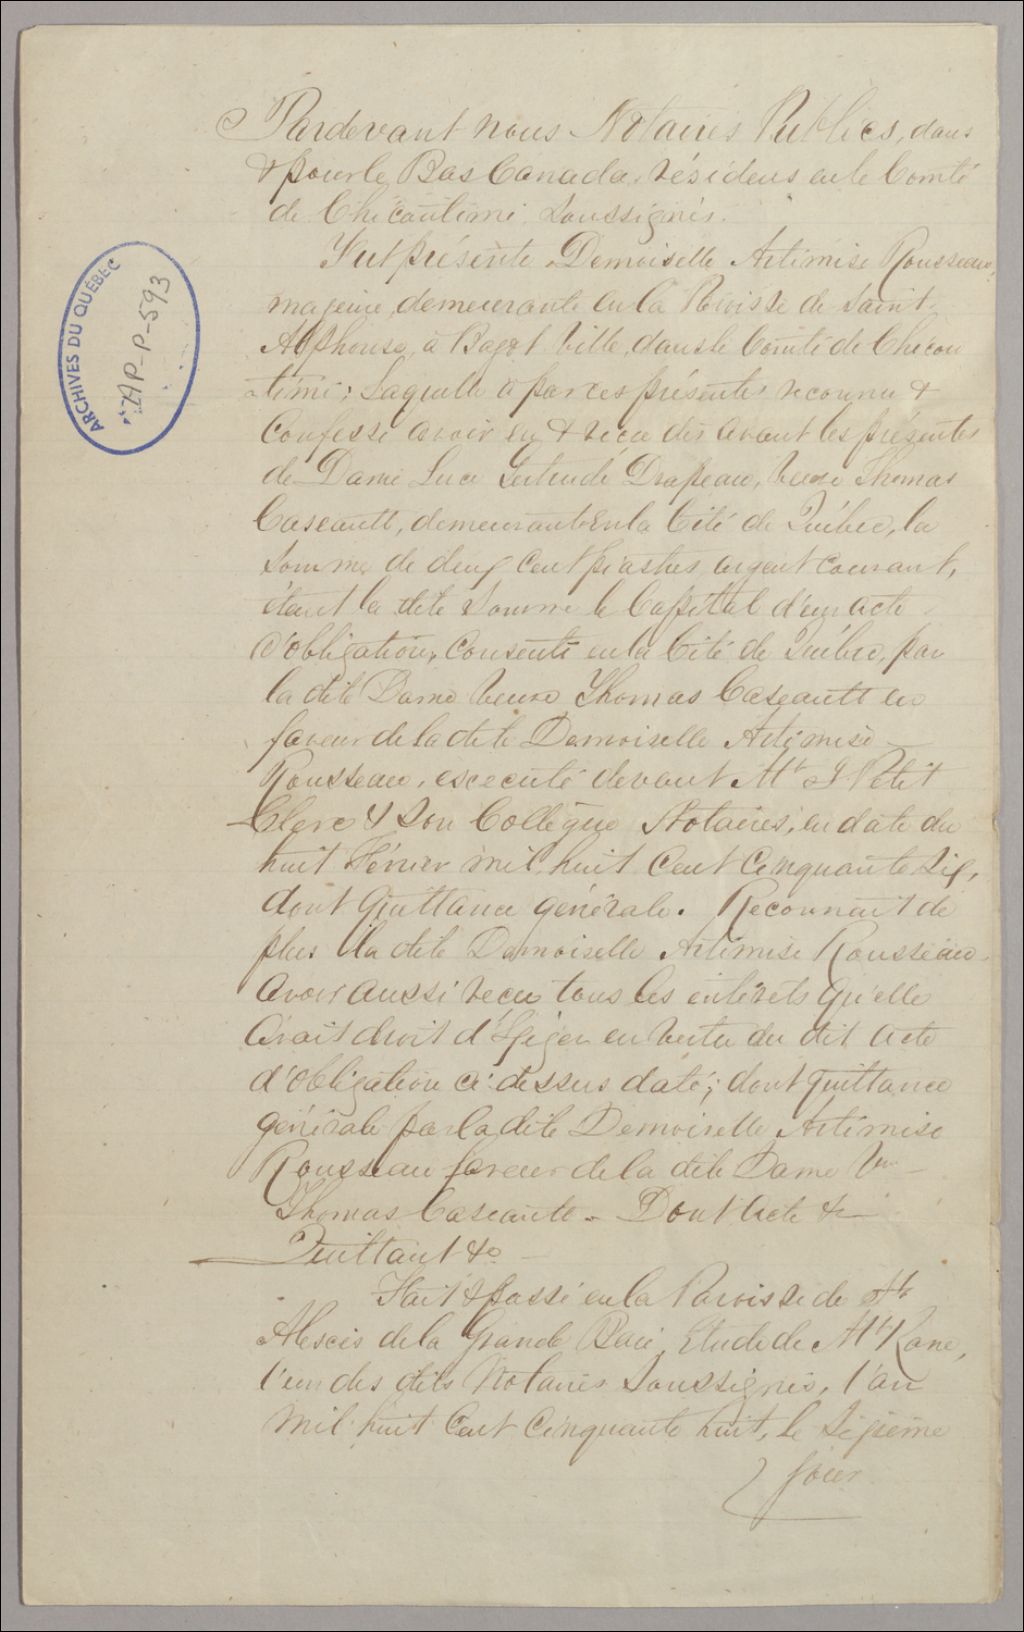 Pardevant nous Notaires Publics, dans
& pour le Bas Canada, résidens en le Comté
de Chicoutimi soussignés.
Fut présente Demoiselle Artimise Rousseau,
majeure, demeurante en la Paroisse de Saint
Alphonse, à Bagot Ville, dans le Comté de Chicou
-timi; Laquelle a par ces présentes reconnu &
Confessé avoir eu & reçu dès avant les présentes
de Dame Luce Gertrude Drapeau, Veuve Thomas
Caseault, demeurant en la Cité de Québec, la
somme de deux cent piastres, argent courant,
étant la dite somme le Capital d'un acte
d'obligation, Consenti en la Cité de Québec, par
la dite Dame Veuve Thomas Caseault en
faveur de la dite Demoiselle Artémise
Rousseau, excecuté devant Mtr J Petit
Clerc & Son Collègue Notaires, en date du
huit Février mil huit Cent Cinquante Six,
dont Quittance générale. Reconnait de
plus la dite Demoiselle Artimise Rousseau
avoir aussi reçu tous les intérêts qu'elle
avait droit d'Exiger en vertu du dit acte
d'obligation ci-dessus daté; dont quittance
générale par la dite Demoiselle Artimise
Rousseau faveur de la dite Dame Vve
Thomas Caseault. Dont Acte &
Quittant &c
Fait & passé en la Paroisse de St
Alexcis de la Grande Baie, Etude de Mtr Kane,
l'un des dits Notaires Soussignés, l'an
mil huit Cent Cinquante huit, le Sixième
jour
ARCHIVES DU QUÉBEC
ZAP-P-593